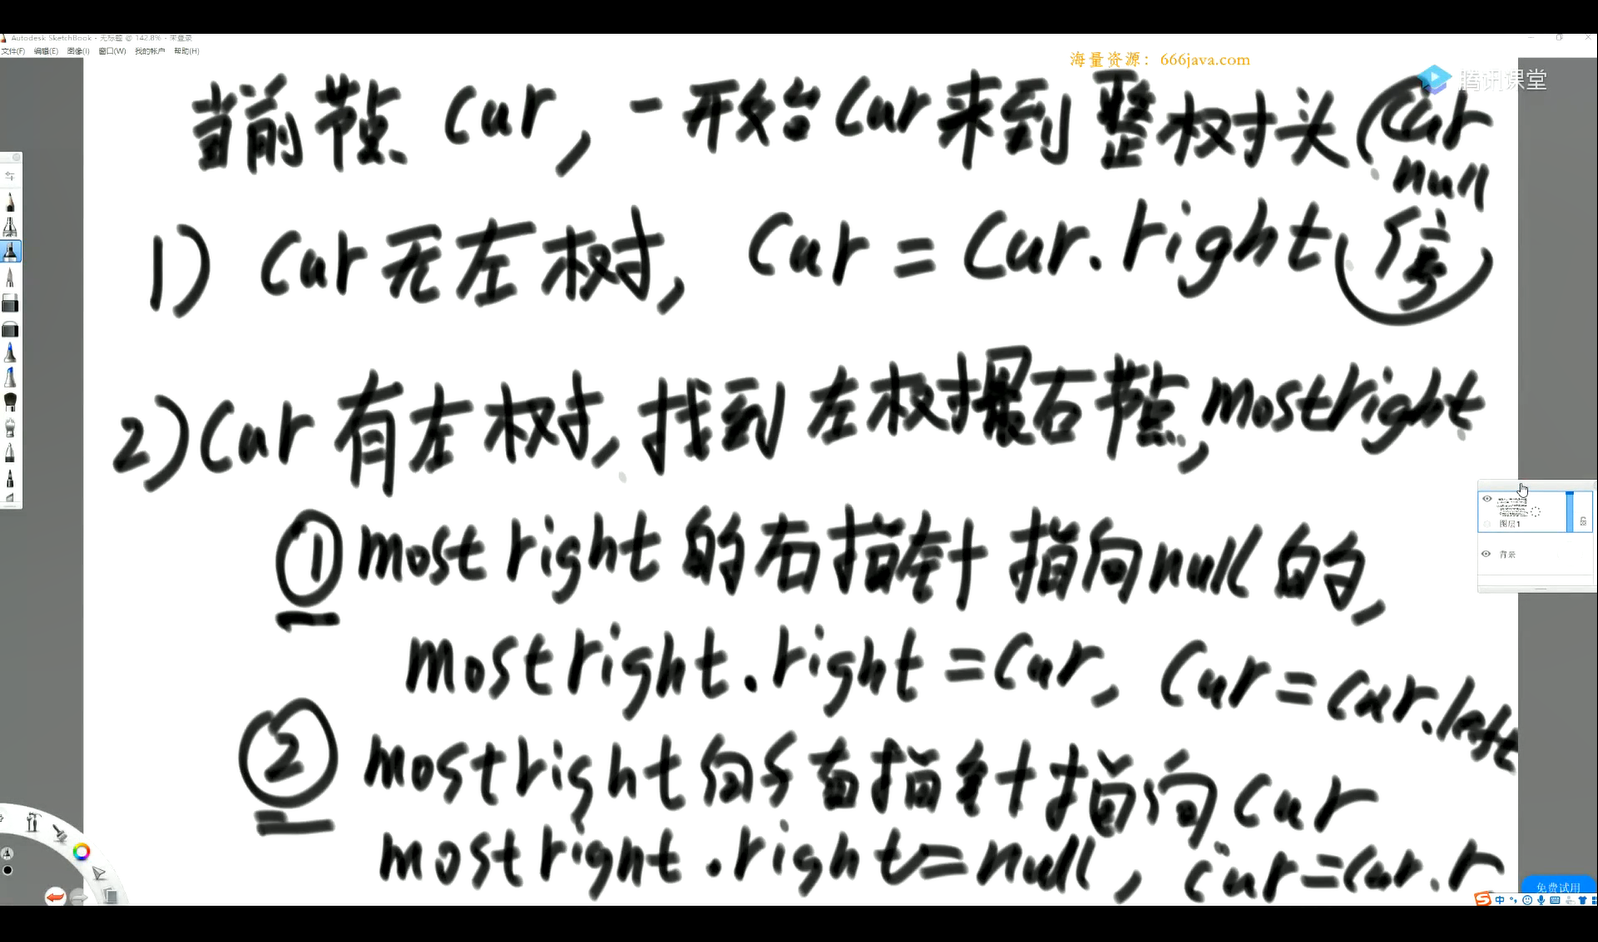 Autodesk SketchBook - 无标题 @ 142.8% - 未登录
文件(F) 编辑(E) 图像(I) 窗口(W) 我的帐户 帮助(H)
海量资源：666java.com
腾讯课堂
当前节点 cur, 一开始cur来到整树头 (cur
null
1) cur无左树, cur = cur.right 停)
2) cur有左树, 找到左树最右节点, mostright
① mostright 的右指针指向null的,
mostright.right = cur, cur = cur.left
② mostright 的右指针指向cur
mostright.right = null, cur = cur.r
图层1
背景
免费试用
中